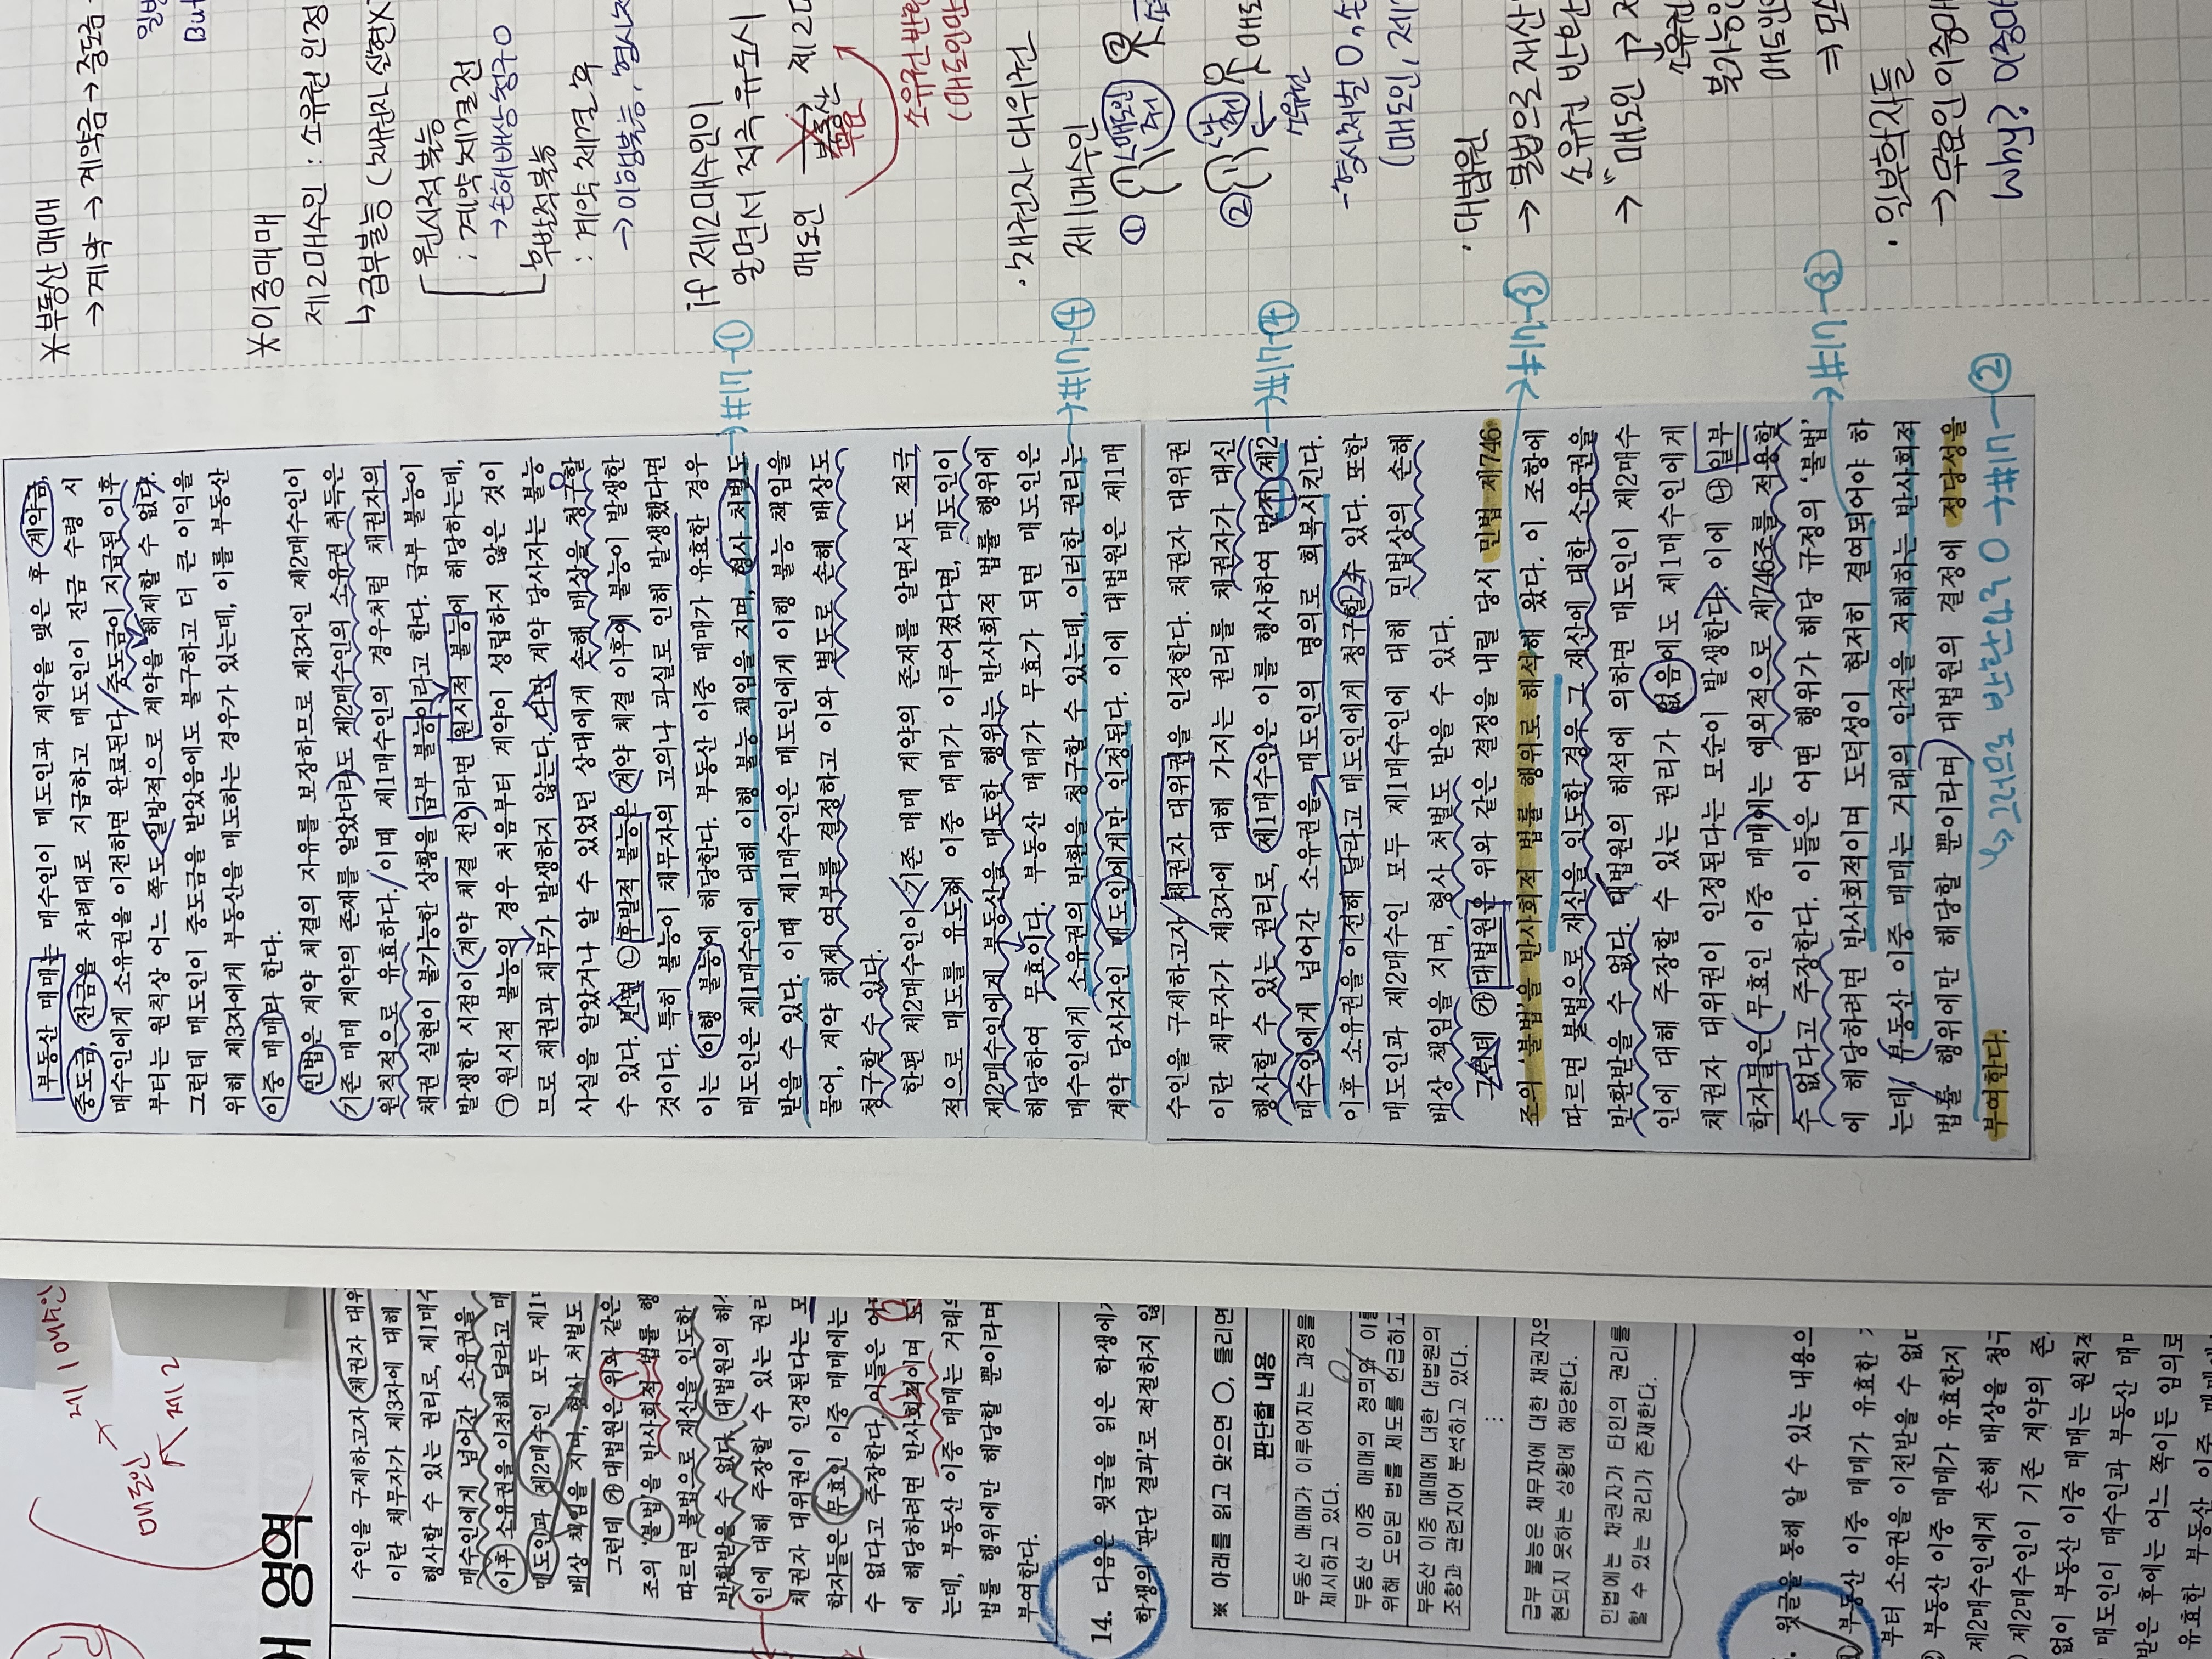 부동산 매매는 매수인이 매도인과 계약을 맺은 후 계약금,
중도금, 잔금을 차례대로 지급하고 매도인이 잔금 수령 시
매수인에게 소유권을 이전하면 완료된다. 중도금이 지급된 이후
부터는 원칙상 어느 쪽도 일방적으로 계약을 해제할 수 없다.
그런데 매도인이 중도금을 받았음에도 불구하고 더 큰 이익을
위해 제3자에게 부동산을 매도하는 경우가 있는데, 이를 부동산
이중 매매라 한다.
민법은 계약 체결의 자유를 보장하므로 제3자인 제2매수인이
기존 매매 계약의 존재를 알았더라도 제2매수인의 소유권 취득은
원칙적으로 유효하다. 이때 제1매수인의 경우처럼 채권자의
채권 실현이 불가능한 상황을 급부 불능이라고 한다. 급부 불능이
발생한 시점이 계약 체결 전이라면 원시적 불능에 해당하는데,
㉠ 원시적 불능의 경우 처음부터 계약이 성립하지 않은 것이
므로 채권과 채무가 발생하지 않는다. 다만 계약 당사자는 불능
사실을 알았거나 알 수 있었던 상대에게 손해 배상을 청구할
수 있다. 반면 ㉡ 후발적 불능은 계약 체결 이후에 불능이 발생한
것이다. 특히 불능이 채무자의 고의나 과실로 인해 발생했다면
이는 이행 불능에 해당한다. 부동산 이중 매매가 유효한 경우
매도인은 제1매수인에 대해 이행 불능 책임을 지며, 형사 처벌도
받을 수 있다. 이때 제1매수인은 매도인에게 이행 불능 책임을
물어, 계약 해제 여부를 결정하고 이와 별도로 손해 배상도
청구할 수 있다.
한편 제2매수인이 기존 매매 계약의 존재를 알면서도 적극
적으로 매도를 유도해 이중 매매가 이루어졌다면, 매도인이
제2매수인에게 부동산을 매도한 행위는 반사회적 법률 행위에
해당하여 무효이다. 부동산 매매가 무효가 되면 매도인은
매수인에게 소유권의 반환을 청구할 수 있는데, 이러한 권리는
계약 당사자인 매도인에게만 인정된다. 이에 대법원은 제1매
수인을 구제하고자 채권자 대위권을 인정한다. 채권자 대위권
이란 채무자가 제3자에 대해 가지는 권리를 채권자가 대신
행사할 수 있는 권리로, 제1매수인은 이를 행사하여 먼저 제2
매수인에게 넘어간 소유권을 매도인의 명의로 회복시킨다.
이후 소유권을 이전해 달라고 매도인에게 청구할 수 있다. 또한
매도인과 제2매수인 모두 제1매수인에 대해 민법상의 손해
배상 책임을 지며, 형사 처벌도 받을 수 있다.
그런데 ㉮ 대법원은 위와 같은 결정을 내릴 당시 민법 제746
조의 '불법'을 반사회적 법률 행위로 해석해 왔다. 이 조항에
따르면 불법으로 재산을 인도한 경우 그 재산에 대한 소유권을
반환받을 수 없다. 대법원의 해석에 의하면 매도인이 제2매수
인에 대해 주장할 수 있는 권리가 없음에도 제1매수인에게
채권자 대위권이 인정된다는 모순이 발생한다. 이에 ㉯ 일부
학자들은 무효인 이중 매매에는 예외적으로 제746조를 적용할
수 없다고 주장한다. 이들은 어떤 행위가 해당 규정의 '불법'
에 해당하려면 반사회적이며 도덕성이 현저히 결여되어야 하
는데, 부동산 이중 매매는 거래의 안전을 저해하는 반사회적
법률 행위에만 해당할 뿐이라며 대법원의 결정에 정당성을
부여한다.
→#17-①
→#17-④
→#17-④
→#17-③
→#17-③
↳ 그러므로 반환요구 O →#17-②
*부동산 매매
→계약 → 계약금 → 중도금
But
*이중매매
제2매수인 : 소유권 인정
↳급부불능 (채권자 실현X
원시적불능
: 계약 체결 전
→손해배상청구 O
후발적불능
: 계약 체결 후
→이행불능, 형사처
if 제2매수인이
알면서 적극 유도시
매도인 제2
무효
소유권 반환
(매도인만
· 채권자 대위권
제1매수인
① 매도인
②
소유권
-형사처벌 O, 손
(매도인, 제
· 대법원
→ 불법으로 재산
소유권 반환
→ "매도인
소유권
불가능인
매도인
⇒ 모
· 일부학자들
→무효인 이중매
Why? 이중매
영역
제1매수인
매도인
제2
수인을 구제하고자 채권자 대위
이란 채무자가 제3자에 대해
행사할 수 있는 권리로, 제1매수
매수인에게 넘어간 소유권을
이후 소유권을 이전해 달라고 매
매도인과 제2매수인 모두 제1
배상 책임을 지며, 형사 처벌도
그런데 ㉮ 대법원은 위와 같은
조의 '불법'을 반사회적 법률 행
따르면 불법으로 재산을 인도한
반환받을 수 없다. 대법원의 해
인에 대해 주장할 수 있는 권리
채권자 대위권이 인정된다는 모
학자들은 무효인 이중 매매에는
수 없다고 주장한다. 이들은
에 해당하려면 반사회적이며 도
는데, 부동산 이중 매매는 거래의
법률 행위에만 해당할 뿐이라며
부여한다.
14. 다음은 윗글을 읽은 학생에게
학생의 '판단 결과'로 적절하지 않
※ 아래를 읽고 맞으면 ○, 틀리면
판단할 내용
부동산 매매가 이루어지는 과정을
제시하고 있다.
부동산 이중 매매의 정의와 이를
위해 도입된 법률 제도를 언급하고
부동산 이중 매매에 대한 대법원의
조항과 관련지어 분석하고 있다.
⋮
급부 불능은 채무자에 대한 채권자의
현되지 못하는 상황에 해당한다.
민법에는 채권자가 타인의 권리를
할 수 있는 권리가 존재한다.
윗글을 통해 알 수 있는 내용으
부동산 이중 매매가 유효한
부터 소유권을 이전받을 수 없
부동산 이중 매매가 유효한지
제2매수인에게 손해 배상을 청구
제2매수인이 기존 계약의 존
없이 부동산 이중 매매는 원칙적
매도인이 매수인과 부동산 매
받은 후에는 어느 쪽이든 임의로
유효한 부동산 이중